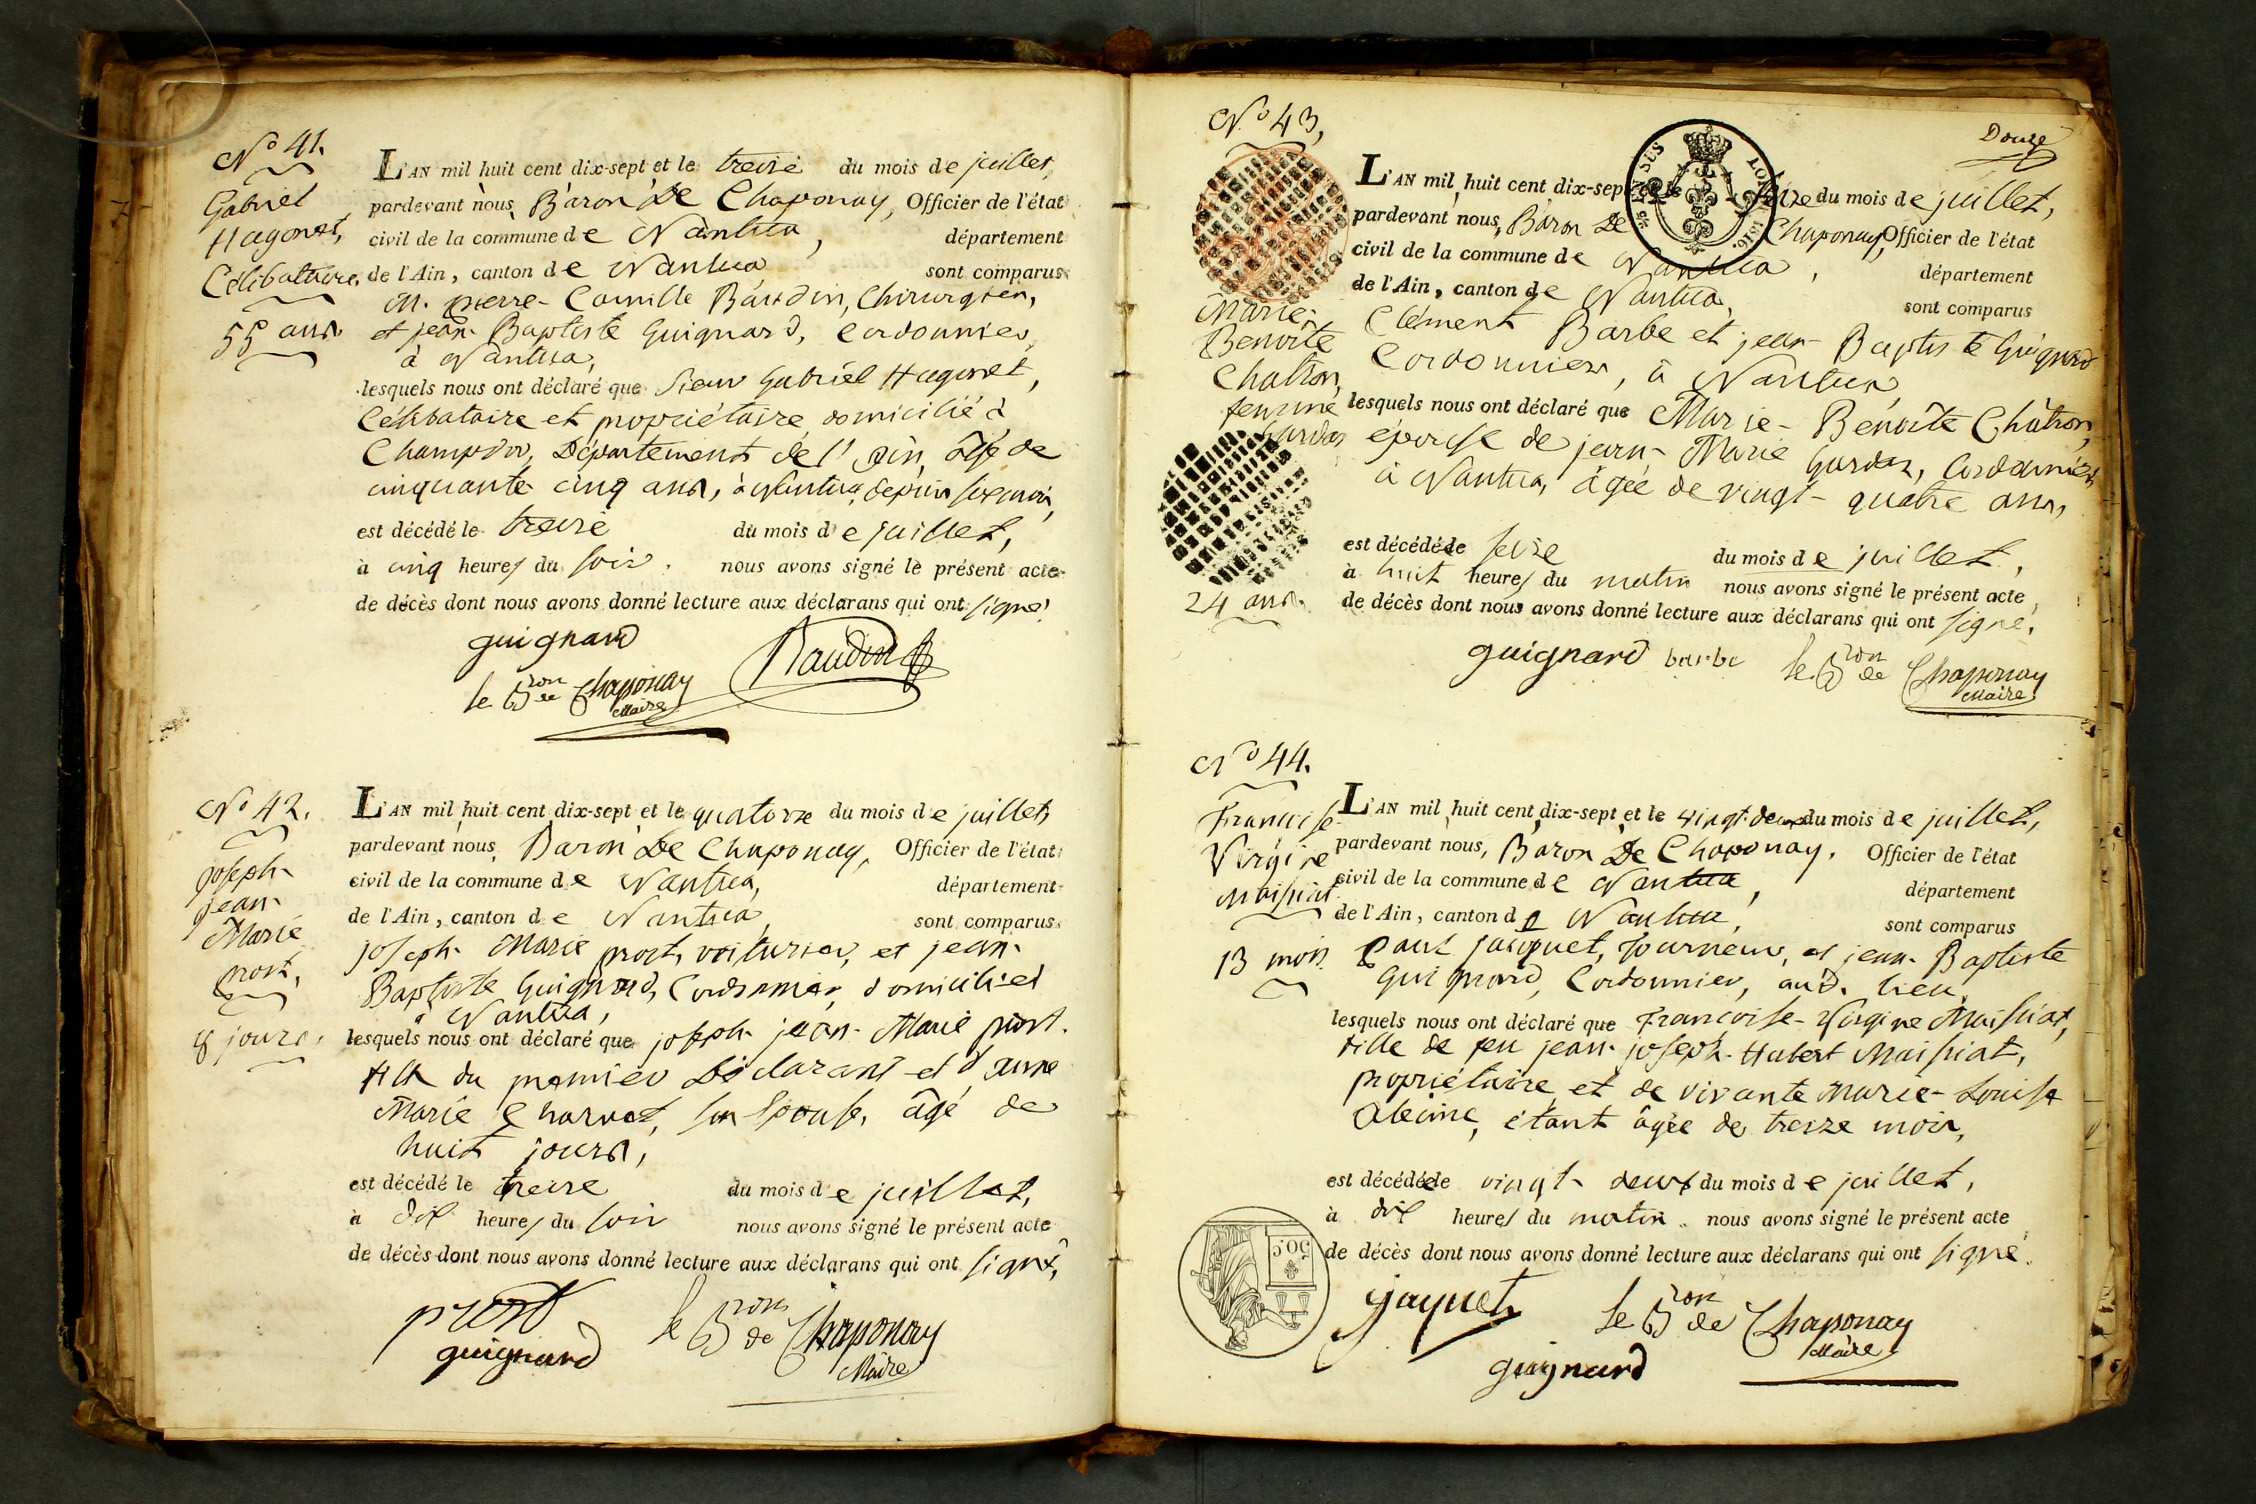 N° 41.
Gabriel
Hugonet,
Célibataire,
55 ans
L'AN mil huit cent dix-sept et le treize du mois de juillet,
pardevant nous, Baron De Chaponay, Officier de l'état
civil de la commune de Nantua, département
de l'Ain, canton de Nantua sont comparus
M. pierre-Camille Baudin, Chirurgien,
et jean-Baptiste Guignard, Cordonnier,
à Nantua,
lesquels nous ont déclaré que Sieur Gabriel Hugonet,
Célibataire et propriétaire domicilié à
Champdor, Département de l'Ain, âgé de
cinquante cinq ans, à Nantua depuis six mois,
est décédé le treize du mois de juillet,
à cinq heures du soir. nous avons signé le présent acte
de décès dont nous avons donné lecture aux déclarans qui ont signé.
guignard
Baudin
le Bron de Chaponay
Maire
N° 42.
joseph-
jean-
Marie
prost,
8 jours.
L'AN mil huit cent dix-sept et le quatorze du mois de juillet,
pardevant nous, Baron De Chaponay, Officier de l'état
civil de la commune de Nantua, département
de l'Ain, canton de Nantua, sont comparus
joseph-Marie prost, voiturier, et jean-
Baptiste Guignard, Cordonnier, domiciliés
à Nantua,
lesquels nous ont déclaré que joseph-jean-Marie prost.
fils du premier Déclarant et d'anne
Marie Charvet, son Epouse, âgé de
huit jours,
est décédé le treize du mois de juillet,
à dix heures du soir nous avons signé le présent acte
de décès dont nous avons donné lecture aux déclarans qui ont signé,
prost
guignard
le Bron de Chaponay
Maire
N° 43,
Douze
Marie-
Benoite
Chatron,
femme
Gurdas
24 ans.
L'AN mil huit cent dix-sept et le seize du mois de juillet,
pardevant nous, Baron De Chaponay, Officier de l'état
civil de la commune de Nantua, département
de l'Ain, canton de Nantua, sont comparus
Clément Barbe et jean-Baptiste Guignard
Cordonniers, à Nantua,
lesquels nous ont déclaré que Marie-Benoîte Châtron,
épouse de jean-Marie Gurdas, Cordonnier
à Nantua, âgée de vingt-quatre ans,
est décédée le seize du mois de juillet,
à huit heures du matin nous avons signé le présent acte
de décès dont nous avons donné lecture aux déclarans qui ont signé.
guignard barbe le Bron de Chaponay
Maire
N° 44.
Françoise-
Virgine
Maissiat
13 mois
L'AN mil huit cent dix-sept et le vingt-deux du mois de juillet,
pardevant nous, Baron De Chaponay, Officier de l'état
civil de la commune de Nantua, département
de l'Ain, canton de Nantua, sont comparus
Paul jacquet, Tourneur, et jean-Baptiste
Guignard, Cordonnier, aud. lieu,
lesquels nous ont déclaré que Françoise-Virgine Maissiat,
fille de feu jean-joseph-Hubert Maissiat,
propriétaire et de vivante Marie-Louise
étant âgée de treize mois,
est décédée le vingt-deux du mois de juillet,
à dix heures du matin. nous avons signé le présent acte
de décès dont nous avons donné lecture aux déclarans qui ont signé.
50c.
jaquet
le Bron de Chaponay
Maire
guignard